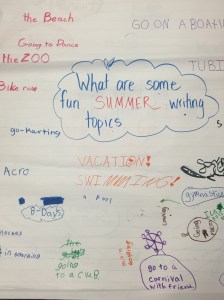 the Beach
GO ON A BOAT
Going to Dance
the ZOO
TUBI
Bike ride
What are some
fun SUMMER writing
topics
go-Karting
VACATION!
SWIMMING!
Acro
gymnastics
B-Days
a Pool
going
to a club
go to a
carnival
with friend